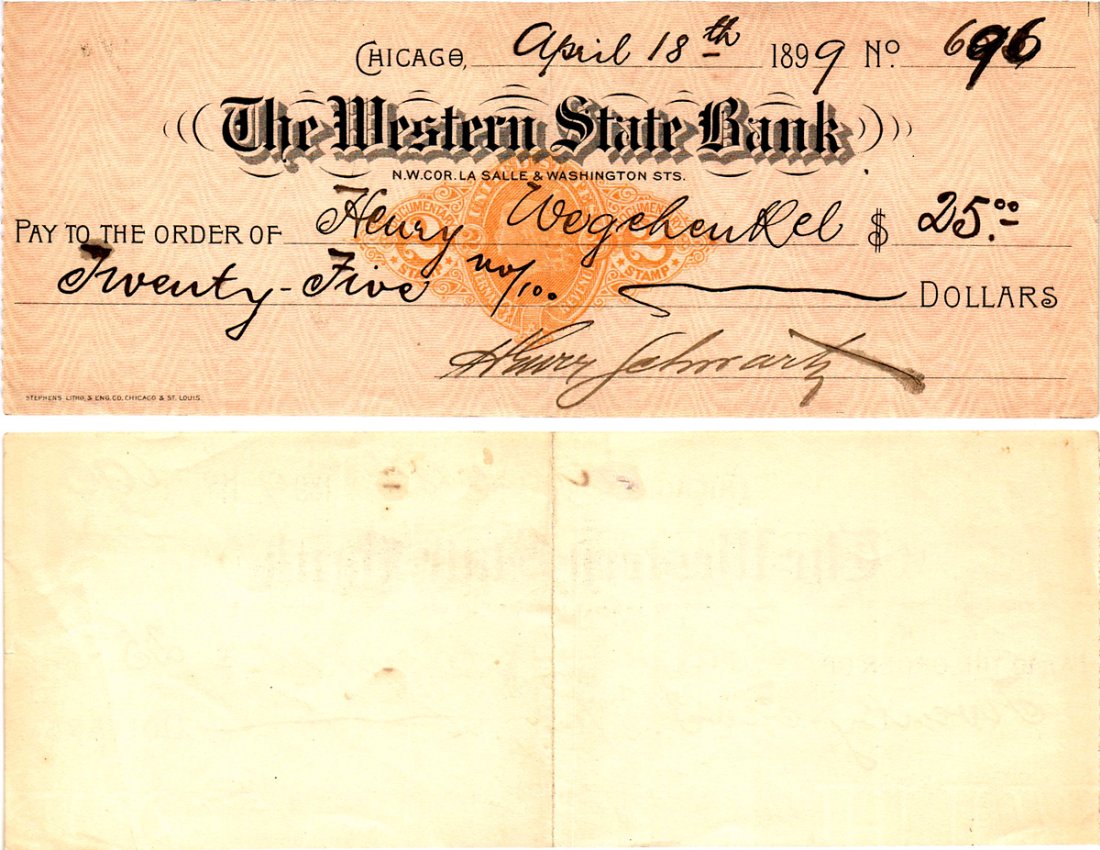 CHICAGO, April 18th 1899 No. 696
The Western State Bank
N.W. COR. LA SALLE & WASHINGTON STS.
PAY TO THE ORDER OF Henry Wegehenkel $ 25.00
Twenty-Five no/100 DOLLARS
UNITED STATES
DOCUMENTARY DOCUMENTARY
2 2
STAMP STAMP
Henry Schwartz
STEPHENS LITHO. & ENG. CO. CHICAGO & ST. LOUIS.